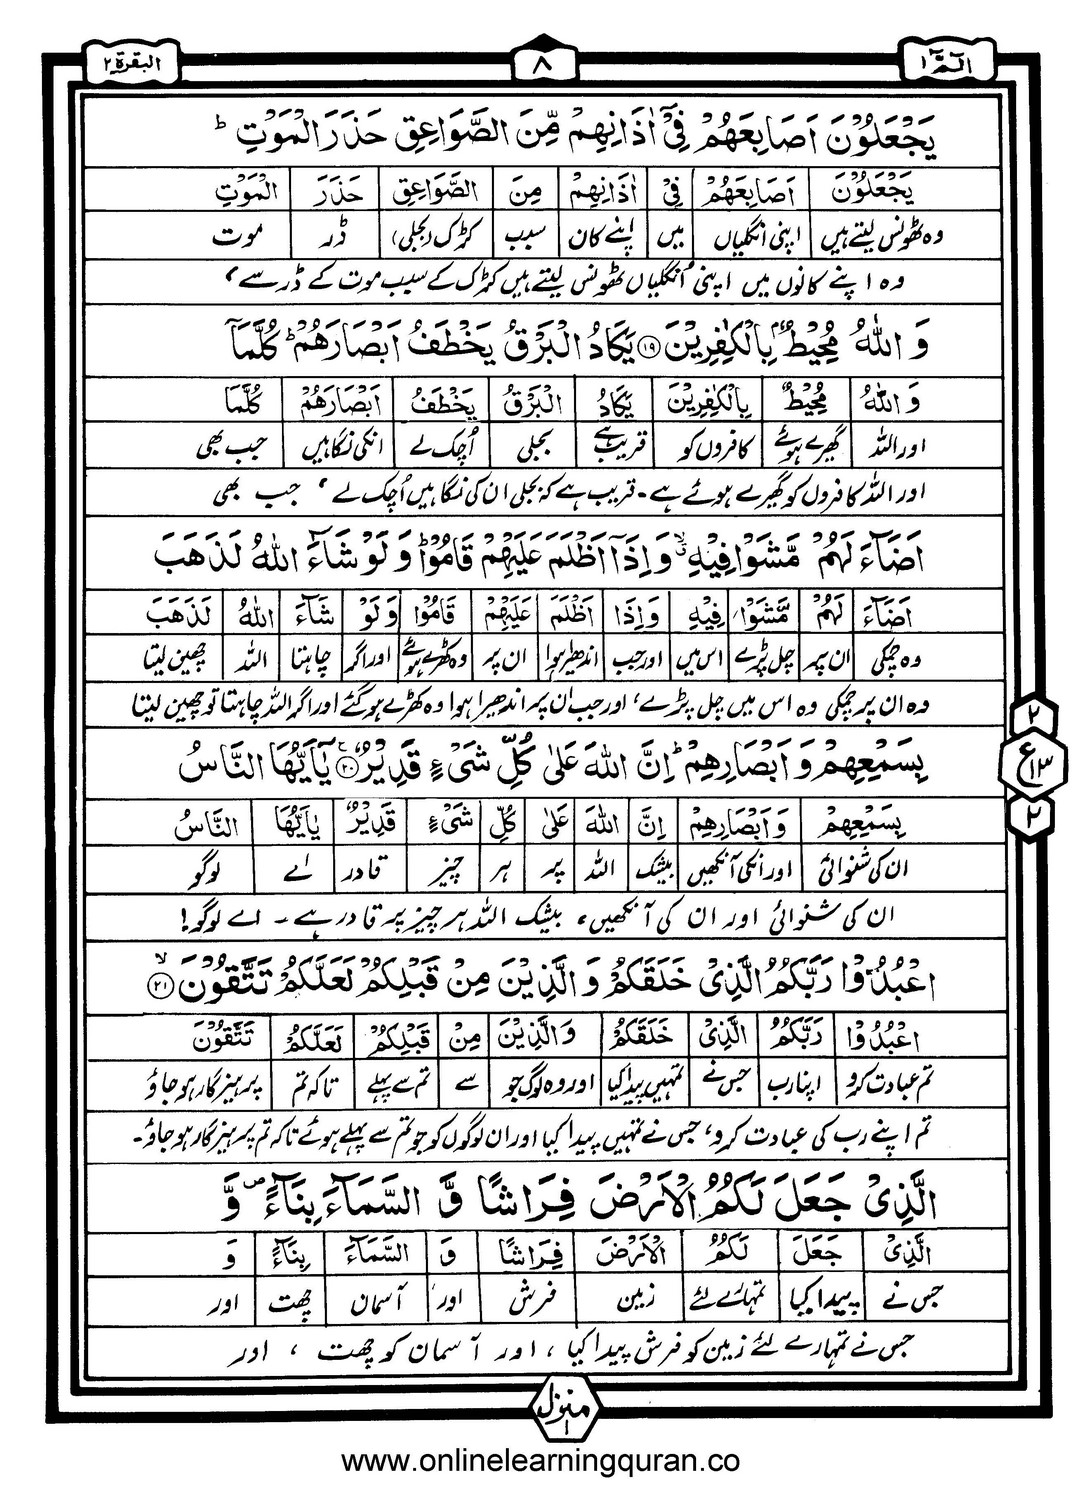 الٓمّٓ ١
٨
البقرة ٢
يَجْعَلُوْنَ اَصَابِعَهُمْ فِيْٓ اٰذَانِهِمْ مِّنَ الصَّوَاعِقِ حَذَرَ الْمَوْتِ ؕ
يَجْعَلُوْنَ اَصَابِعَهُمْ فِيْٓ اٰذَانِهِمْ مِنَ الصَّوَاعِقِ حَذَرَ الْمَوْتِ
وہ ٹھونس لیتے ہیں اپنی انگلیاں میں اپنے کان سبب کڑک (بجلی) ڈر موت
وہ اپنے کانوں میں اپنی انگلیاں ٹھونس لیتے ہیں کڑک کے سبب موت کے ڈر سے ،
وَ اللّٰهُ مُحِيْطٌۢ بِالْكٰفِرِيْنَ ﴿١٩﴾ يَكَادُ الْبَرْقُ يَخْطَفُ اَبْصَارَهُمْ ؕ كُلَّمَآ
وَ اللّٰهُ مُحِيْطٌ بِالْكٰفِرِيْنَ يَكَادُ الْبَرْقُ يَخْطَفُ اَبْصَارَهُمْ كُلَّمَا
اور اللہ گھیرے ہوئے کافروں کو قریب ہے بجلی اُچک لے انکی نگاہیں جب بھی
اور اللہ کافروں کو گھیرے ہوئے ہے۔ قریب ہے کہ بجلی ان کی نگاہیں اُچک لے ، جب بھی
اَضَآءَ لَهُمْ مَّشَوْا فِيْهِ ۙۗ وَ اِذَآ اَظْلَمَ عَلَيْهِمْ قَامُوْا ؕ وَ لَوْ شَآءَ اللّٰهُ لَذَهَبَ
اَضَآءَ لَهُمْ مَّشَوْا فِيْهِ وَ اِذَا اَظْلَمَ عَلَيْهِمْ قَامُوْا وَ لَوْ شَآءَ اللّٰهُ لَذَهَبَ
وہ چمکی ان پر چل پڑے اس میں اور جب اندھیرا ہوا ان پر وہ کھڑے ہوئے اور اگر چاہتا اللہ چھین لیتا
وہ ان پر چمکی وہ اس میں چل پڑے ، اور جب ان پر اندھیرا ہوا وہ کھڑے ہو گئے اور اگر اللہ چاہتا تو چھین لیتا
بِسَمْعِهِمْ وَ اَبْصَارِهِمْ ؕ اِنَّ اللّٰهَ عَلٰى كُلِّ شَيْءٍ قَدِيْرٌ ﴿٢٠﴾ ع يٰٓاَيُّهَا النَّاسُ
بِسَمْعِهِمْ وَ اَبْصَارِهِمْ اِنَّ اللّٰهَ عَلٰى كُلِّ شَيْءٍ قَدِيْرٌ يٰاَيُّهَا النَّاسُ
ان کی شنوائی اور انکی آنکھیں بیشک اللہ پر ہر چیز قادر اے لوگو
ان کی شنوائی اور ان کی آنکھیں ، بیشک اللہ ہر چیز پر قادر ہے ۔ اے لوگو!
٢
ع ١٣
٢
اعْبُدُوْا رَبَّكُمُ الَّذِيْ خَلَقَكُمْ وَ الَّذِيْنَ مِنْ قَبْلِكُمْ لَعَلَّكُمْ تَتَّقُوْنَ ۙ﴿٢١﴾
اعْبُدُوْا رَبَّكُمُ الَّذِيْ خَلَقَكُمْ وَ الَّذِيْنَ مِنْ قَبْلِكُمْ لَعَلَّكُمْ تَتَّقُوْنَ
تم عبادت کرو اپنا رب جس نے تمہیں پیدا کیا اور وہ لوگ جو سے تم سے پہلے تاکہ تم پرہیزگار ہو جاؤ
تم اپنے رب کی عبادت کرو ، جس نے تمہیں پیدا کیا اور ان لوگوں کو جو تم سے پہلے ہوئے تاکہ تم پرہیزگار ہو جاؤ۔
الَّذِيْ جَعَلَ لَكُمُ الْاَرْضَ فِرَاشًا وَّ السَّمَآءَ بِنَآءً ۪ وَّ
الَّذِيْ جَعَلَ لَكُمُ الْاَرْضَ فِرَاشًا وَّ السَّمَآءَ بِنَآءً وَ
جس نے پیدا کیا تمہارے لئے زمین فرش اور آسمان چھت اور
جس نے تمہارے لئے زمین کو فرش پیدا کیا ، اور آسمان کو چھت ، اور
منزل ١
www.onlinelearningquran.co